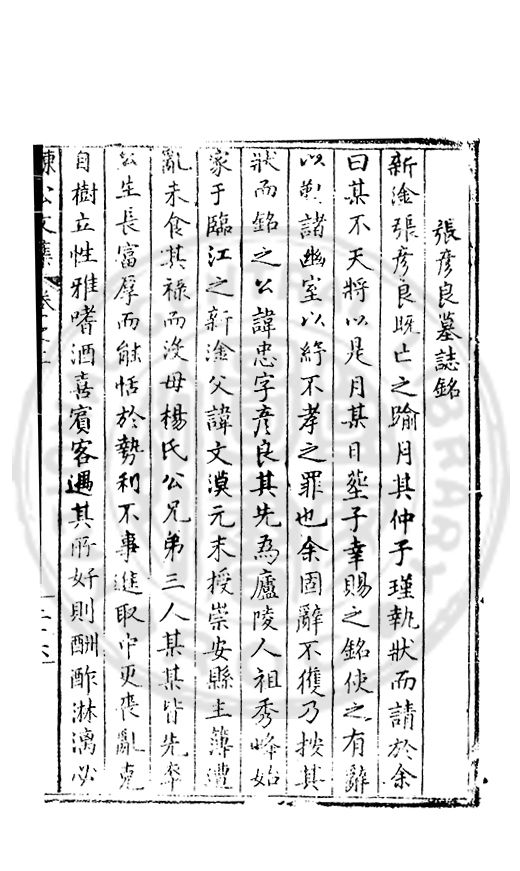 張彥良墓誌銘
新淦張彥良既亡之踰月其仲子瑾執狀而請於余
曰某不天將以是月某日塟子幸賜之銘使之有辭
以勒諸幽室以紓不孝之罪也余固辭不獲乃按其
狀而銘之公諱忠字彥良其先爲廬陵人祖秀峰始
家于臨江之新淦父諱文漠元末授崇安縣主簿遭
亂未食其祿而沒母楊氏公兄弟三人某某皆先卒
公生長富厚而能恬於勢利不事進取中更喪亂克
自樹立性雅嗜酒喜賓客遇其所好則酬酢淋漓必
公文集 卷之
二十六